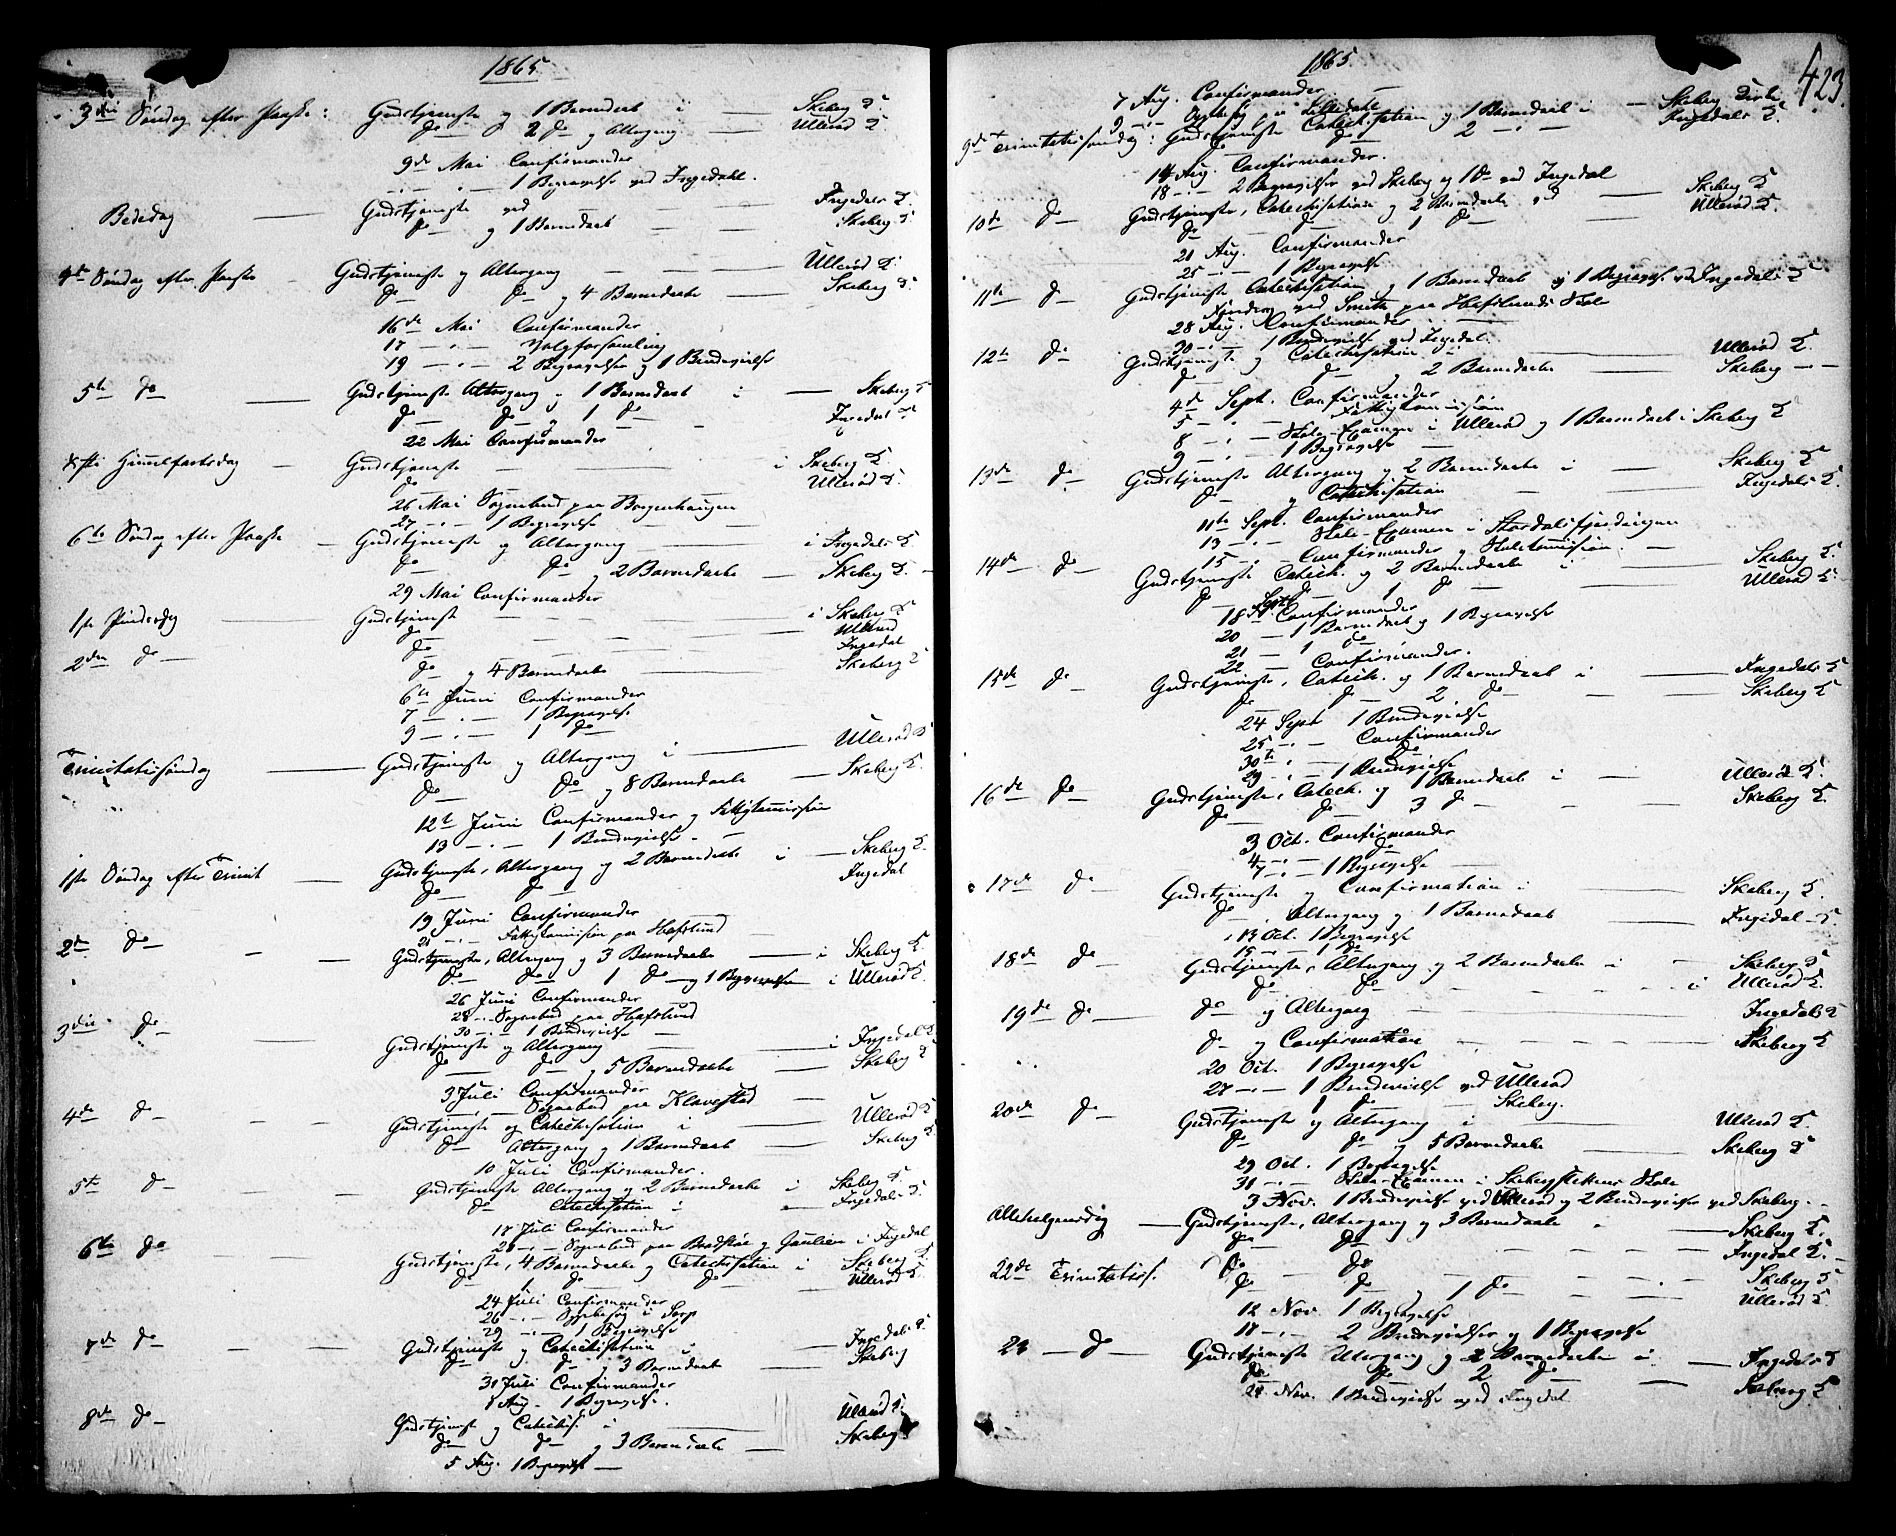 1865
3die Søndag efter Paaske: Gudstjeneste og 1 Barnedaab i — Skeberg K.
do og 2 do og Altergang — Ullerød K.
9de Mai Confirmander
— " — 1 Begravelse ved Ingedahl.
Bededag — Gudstjeneste ved — Ingedals K.
do og 1 Barnedaab — Skeberg K.
4de Søndag efter Paaske — Gudstjeneste og Altergang — Ullerød K.
do do og 4 Barnedaabe — Skeberg K.
16de Mai Confirmander
17 — " — Valgforsamling
19 — " — 2 Begravelse og 1 Brudevielse
5te do — Gudstjeneste Altergang og 1 Barnedaab i — Skeberg K
do do og 1 do — Ingedal K
22 Mai Confirmander
Kristi Himmelfartsdag — Gudstjeneste — i Skeberg K.
do — Ullerød K.
26 Mai Sognebud paa Borgenhaugen
27 — " — 1 Begravelse
6te Søndag efter Paaske — Gudstjeneste og Altergang — i Ingedals K.
do do og 2 Barnedaabe — Skeberg K.
29 Mai Confirmander
1ste Pindsedag Gudstjeneste — i Skeberg K
do — Ullerød
2den do — do — Ingedal
do og 4 Barnedaabe — Skeberg K
6te Juni Confirmander
7 — " — 1 Begravelse
9 — " — 1 do
Trinitatissøndag — Gudstjeneste og Altergang i — Ullerød K
do do og 8 Barnedaabe — Skeberg K.
12te Juni Confirmander og Fattigkommission
13 — " — 1 Brudevielse —
1ste Søndag efter Trinit — Gudstjeneste, Altergang og 2 Barnedaabe i — Skeberg K.
do do — Ingedal
19 Juni Confirmander
21 — " — Fattigkommission paa Hafslund
2den do — Gudstjeneste, Altergang og 3 Barnedaabe — i Skeberg K.
do do 1 do og 1 Begravelse i Ullerød K.
26 Juni Confirmander
28 — " — Sognebud paa Hafslund
30 — " — 1 Brudevielse
3die do — Gudstjeneste og Altergang — i Ingedal K
do do og 5 Barnedaabe — Skeberg K
3 Juli Confirmander
— " — Sognebud paa Klavestad
4de do — Gudstjeneste og Catechisation i — Ullerød K
do Altergang og 1 Barnedaab — Skeberg K
10 Juli Confirmander.
5te do — Gudstjeneste Altergang og 2 Barnedaabe i — Skeberg K.
do Catechisation i — Ingedals K.
17 Juli Confirmander
20 — " — Sognebud paa i Ingedal
6te do — Gudstjeneste, 4 Barnedaabe og Catechisation i — Skeberg K.
do 1 do do — Ullerød K.
24 Juli Confirmander
26 — " — i Sarp
29 — " — 1 Begravelse
7de do — Gudstjeneste og Catechisation i — Ingedals K.
do do og 3 Barnedaab — Skeberg
31 Juli Confirmander
1 Aug. 1 Begravelse.
8de do — Gudstjeneste og Catechis. i — Ullerød K.
do do og 3 Barnedaabe — Skeberg
5 Aug. 1 Begravelse —
1865.
423.
7 Aug. Confirmander
9 — " —
9de Trinitatissøndag: Gudstjeneste Catechisation og 1 Barnedaab i — Skeberg Kirke
do do 2 — " — Ingedals K.
14 Aug. Confirmander.
18 — " — 2 Begravelser ved Skeberg og 1 do ved Ingedal
10de do — Gudstjeneste, Catechisation og 2 Barnedaabe ved — Skeberg K
do do 1 do — Ullerød K.
21 Aug. Confirmander
25 — " — 1 Begravelse
11te do — Gudstjeneste Catechisation og 1 Barnedaab og 1 Begravelse ved Ingedals K
ved Smith paa Hafslunds Skole
28 Aug. Confirmander
30 — " — 1 Brudevielse ved Ingedal.
12te do — Gudstjeneste og Catechisation i — Ullerød K.
do do og 2 Barnedaabe — Skeberg — " —
4de Sept. Confirmander
5 — " — Fattigkommission
8 — " — Skole-Examen i Ullerød og 1 Barnedaab i Skeberg K
9 — " — 1 Begravelse
13de do — Gudstjeneste Altergang og 2 Barnedaabe i — Skeberg K
do og Catechisation — Ingedals K.
11te Sept. Confirmander
13 — " — Skole-Examen i Stordalsfjerdingen
15 — " — Confirmander og Skolekommission. —
14de do — Gudstjeneste Catech. og 2 Barnedaabe i — Skeberg K.
do do 1 do — Ullerød K.
18 Sept. Confirmander
20 — 1 Barnedaab og 1 Begravelse
21 — 1 do
22 — Confirmander.
15de do — Gudstjeneste, Catech. og 1 Barnedaab i — Ingedals K
do do 2 do — Skeberg K
24 Sept 1 Brudevielse
25 — " — Confirmander
30te — " — do
29 — " — 1 Brudevielse
16de do — Gudstjeneste, Catech. og 1 Barnedaab i — Ullerød K.
do do 3 do — Skeberg K.
3 Oct. Confirmander
4 — " — do
7 — " — 1 Begravelse
17de do — Gudstjeneste og Confirmation i — Skeberg K
do Altergang og 1 Barnedaab — Ingedal K
13 Oct. 1 Begravelse
15 — " — 1 do
18de do — Gudstjeneste, Altergang og 2 Barnedaabe i — Skeberg K
do do — i Ullerød K.
19de do — do og Altergang — Ingedals K
do og Confirmation — Skeberg K
20 Oct. 1 Begravelse
27 — " — 1 Brudevielse ved Ullerød
— 1 do — Skeberg.
20de do — Gudstjeneste og Altergang i — Ullerød K.
do do og 5 Barnedaabe — Skeberg K
29 Oct. 1 Begravelse
31 — " — Skole-Examen i Skebergslettens Skole
3 Nov. 1 Brudevielse ved Ullerød og 2 Brudevielse ved Skeberg.
Allehelgensdag — Gudstjeneste, Altergang og 3 Barnedaabe — Skeberg K.
do do — Ingedal K.
22de Trinitatiss. do do — Skeberg K
do do 1 do — Ullerød K
12 Nov. 1 Begravelse
17 — " — 2 Brudevielser og 1 Begravelse
23 — do — Gudstjeneste Altergang og 2 Barnedaabe i — Ingedals K
do do 2 do — Skeberg K
24 Nov. 1 Brudevielse ved Ingedal